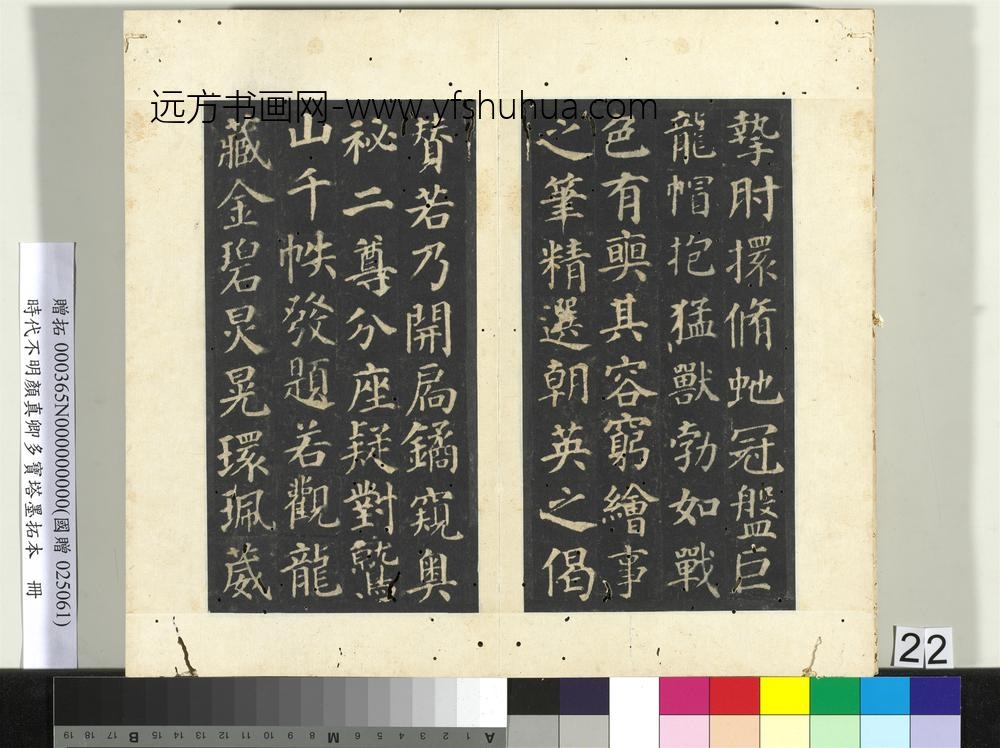 远方书画网-www.yfshuhua.com
摯肘擐脩虵冠盤巨
龍帽抱猛獸勃如戰
色有奭其容窮繪事
之筆精選朝英之偈
賛若乃開扃鐍窺奧
祕二尊分座疑對鷲
山千帙發題若觀龍
藏金碧炅晃環珮葳
贈拓 000365N000000000(國贈 025061)
時代不明顏真卿多寶塔墨拓本 冊
22
A 1 2 3 4 5 6 M 8 9 10 11 12 13 14 15 B 17 18 19